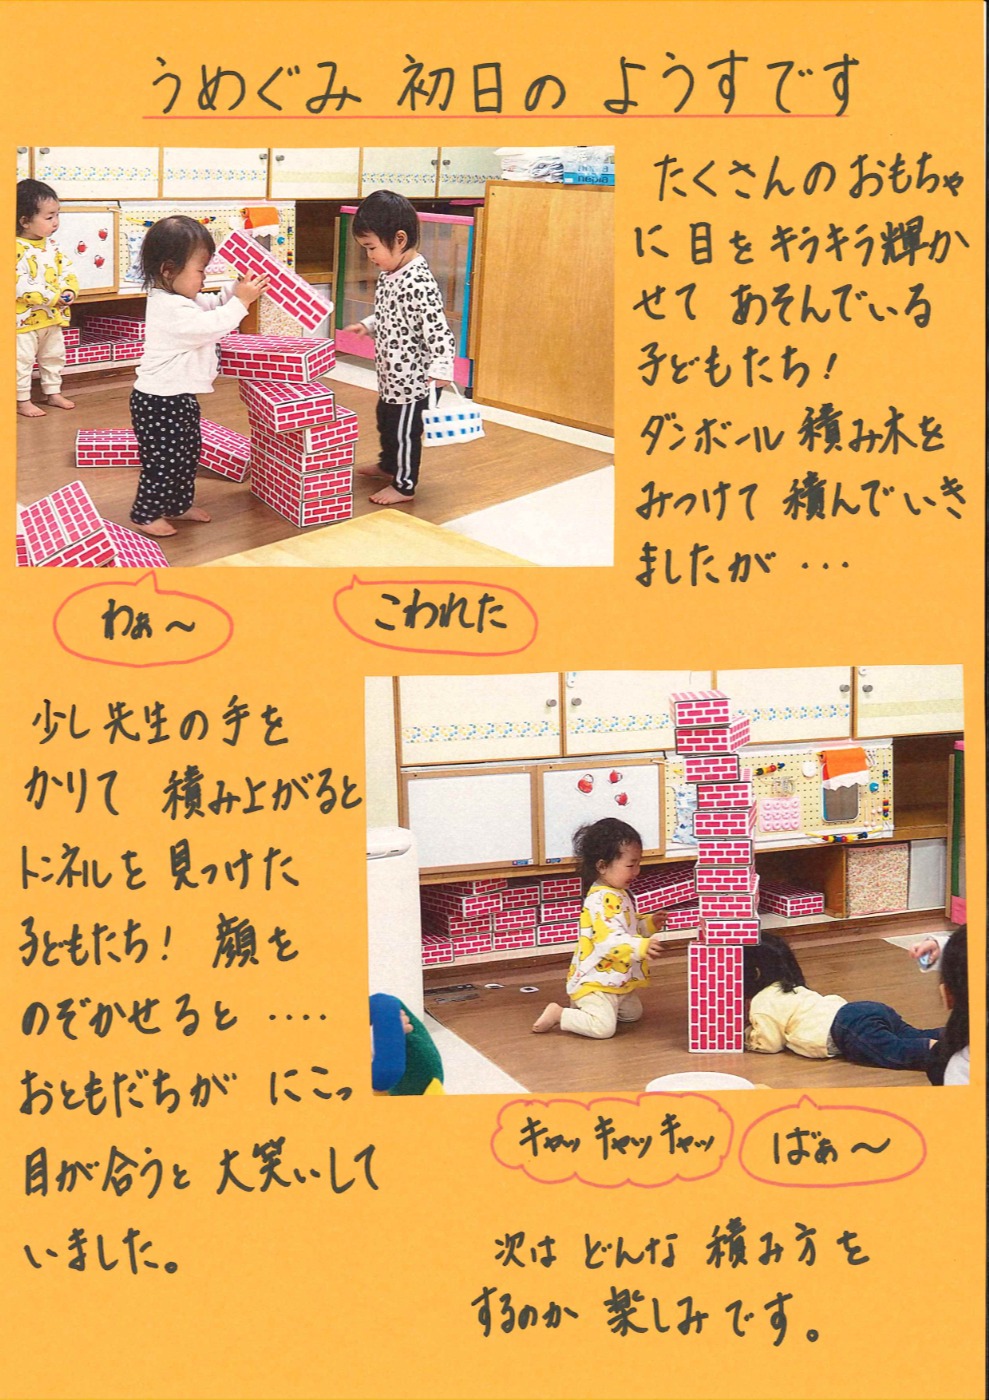 うめぐみ 初日の ようすです
たくさんの おもちゃ
に 目を キラキラ輝か
せて あそんでいる
子どもたち！
ダンボール 積み木を
みつけて 積んでいき
ましたが ・・・
わぁ～
こわれた
少し先生の手を
かりて 積み上がると
トンネルを 見つけた
子どもたち！ 顔を
のぞかせると ・・・・
おともだちが にこっ
目が合うと 大笑いして
いました。
キャッ キャッ キャッ
ばぁ～
次は どんな 積み方を
するのか 楽しみです。